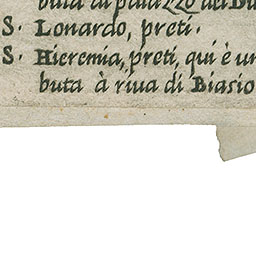 buta al palazzo del Du
S. Lonardo, preti.
S. Hieremia, preti, qui è un
buta à riua di Biasio